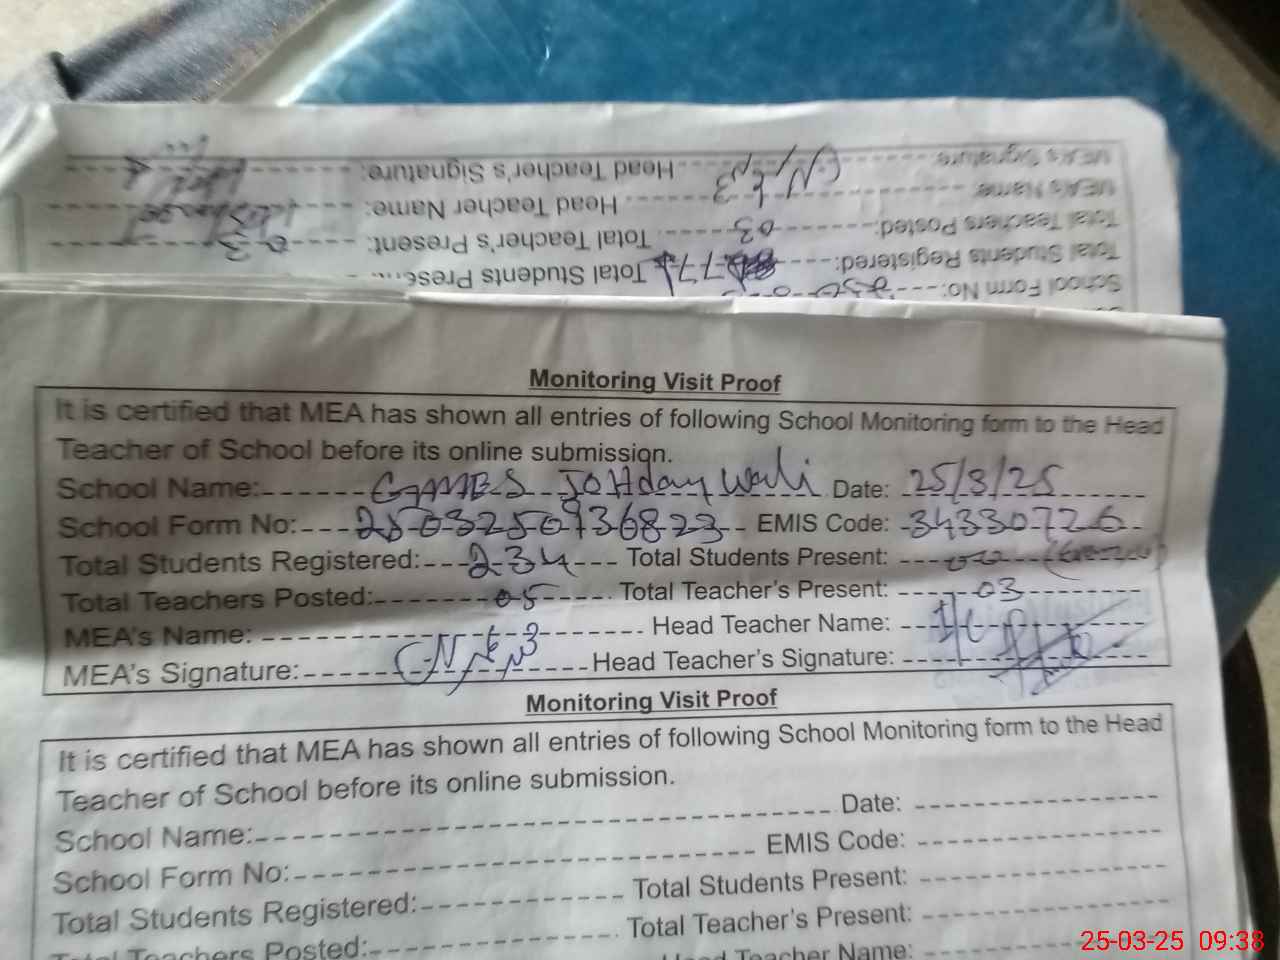 MEA's Signature: Head Teacher's Signature:
MEA's Name: Head Teacher Name:
Total Teachers Posted: 03 Total Teacher's Present: 03
Total Students Registered: 77 Total Students Present:
School Form No:
Monitoring Visit Proof
It is certified that MEA has shown all entries of following School Monitoring form to the Head
Teacher of School before its online submission.
School Name: GMMES JOHday Wali Date: 25/3/25
School Form No: 2503250936823 EMIS Code: 34330726
Total Students Registered: 234 Total Students Present: 00
Total Teachers Posted: 05 Total Teacher's Present: 03
MEA's Name: Head Teacher Name:
MEA's Signature: Head Teacher's Signature:
Monitoring Visit Proof
It is certified that MEA has shown all entries of following School Monitoring form to the Head
Teacher of School before its online submission.
School Name: Date:
School Form No: EMIS Code:
Total Students Registered: Total Students Present:
Total Teachers Posted: Total Teacher's Present:
Head Teacher Name:
25-03-25 09:38